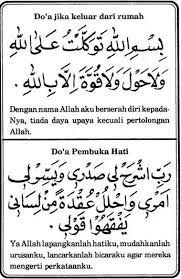 Do'a jika keluar dari rumah
بِسْمِ اللّٰهِ تَوَكَّلْتُ عَلَى اللّٰهِ
وَلَاحَوْلَ وَلَاقُوَّةَ اِلَّا بِاللّٰهِ .
Dengan nama Allah aku berserah diri kepada-
Nya, tiada daya upaya kecuali pertolongan
Allah.
Do'a Pembuka Hati
رَبِّ اشْرَحْ لِى صَدْرِى وَيَسِّرْ لِى
اَمْرِى وَاحْلُلْ عُقْدَةً مِنْ لِسَانِى
يَفْقَهُوْا قَوْلِى .
Ya Allah lapangkanlah hatiku, mudahkanlah
urusanku, lancarkanlah bicaraku agar mereka
mengerti perkataanku.